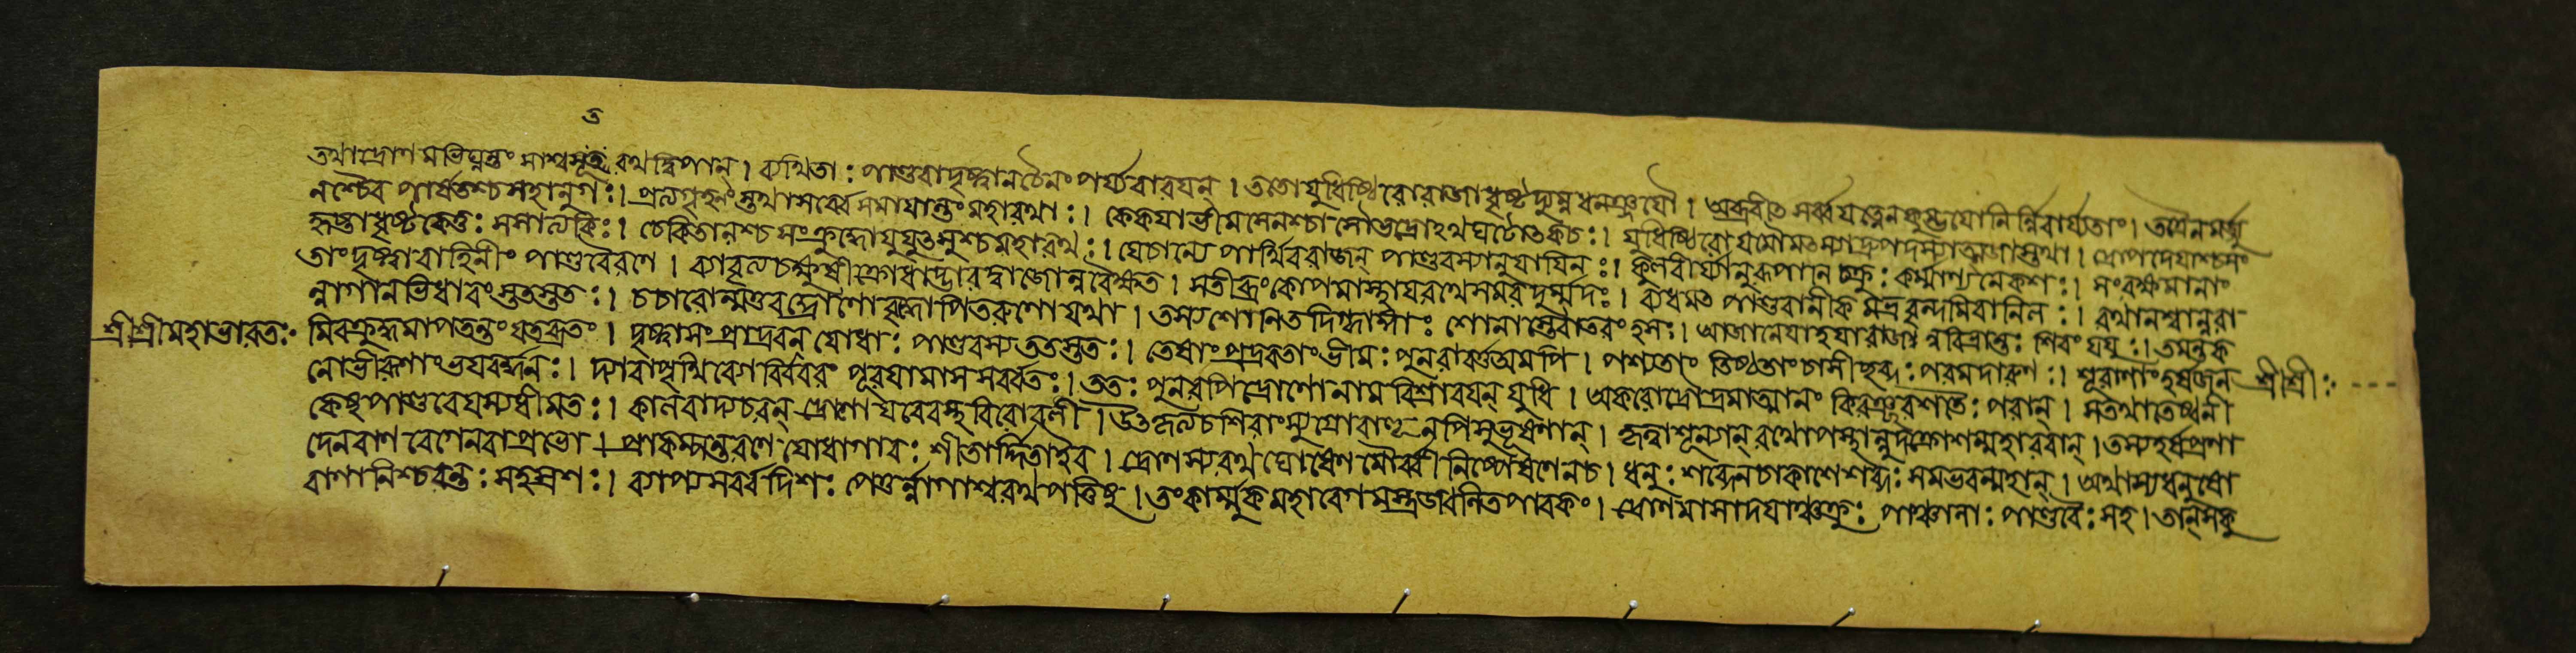 শ্রীশ্রীমহাভারত:
ত
তথাদ্রোণ মভিঘ্নন্তং সাশ্বসূত রথদ্বিপান্। ব্যথিতা: পাণ্ডবাদৃষ্ট্বানচৈনং পর্য্যবারযন্। ততোযুধিষ্ঠিরোরাজাধৃষ্টদ্যুম্নধনঞ্জযৌ। অব্রবীৎ সর্ব্বযত্নেনকুম্ভযোনির্ন্নিবার্য্যতাং। তত্রৈনমর্জ্জু
নশ্চৈব পার্ষতশ্চসহানুগ:। প্রত্যগৃহ্নংস্তথাসর্ব্বেসমাযান্তংমহারথা:। কেকযাভীমসেনশ্চ সৌভদ্রোঽথঘটোৎকচ:। যুধিষ্ঠিরোযমৌমৎস্যাদ্রুপদস্যাত্মজাস্তথা। দ্রৌপদেযাশ্চসং
হৃষ্টাধৃষ্টকেতু: সসাত্যকি:। চেকিতানশ্চসংক্রুদ্ধোযুযুৎসুশ্চমহারথ:। যেচান্যে পার্থিবরাজন্ পাণ্ডবস্যানুযাযিন:। কুলবীর্য্যানুরূপানি চক্রু: কর্ম্মাণ্যনেকশ:। সংরক্ষমানাং
তাংদৃষ্ট্বাবাহিনীং পাণ্ডবৈরণে। ব্যাবৃত্যচক্ষুষীক্রোধাদ্ভারদ্বাজোন্ববৈক্ষত। সতীব্রংকোপমাস্থাযরথেসমরদুর্ম্মদ:। ব্যধমৎ পাণ্ডবানীক মভ্রবৃন্দমিবানিল:। রথানশ্বান্নরা
ন্নাগানভিধাবংস্ততস্তত:। চচারোন্মত্তবদ্দ্রোণোবৃদ্ধোপিতরুণোযথা। তস্যশোনিতদিগ্ধাঙ্গা: শোনাস্তেবাতরংহস:। আজানেযাহযারাজন্নবিভ্রান্ত: শিবং যযু:। তমন্তক
মিবক্রুদ্ধমাপতন্তংযতব্রতং। দৃষ্ট্বাসংপ্রাদ্রবন্ যোধা: পাণ্ডবস্য ততস্তত:। তেষাংপ্রদ্রবতাংভীম: পুনরাবর্ত্ততামপি। পশ্যতাং তিষ্ঠতাংচাসীচ্ছব্দ: পরমদারুণ:। শূরাণাংহর্ষজন
নোভীরূণাংভযবর্দ্ধন:। দ্যাবাপৃথিবেযাবির্ববরং পূরযামাসসর্ব্বত:। তত: পুনরপিদ্রোণোনামবিশ্রাবযন্ যুধি। অকরোদ্রৌদ্রমাত্মানং কিরঞ্ছরশতৈ: পরান্। সতথাতেষ্বনী
কেষুপাণ্ডবেযস্যধীমত:। কালবদ্ব্যচরন্ দ্রোণাযুবেবস্থবিরোবলী। উৎকৃত্যচশিরাংস্যুগ্রোবাহূনপিসুভূষণান্। কৃত্বাশূন্যান্ রথোপস্থানুদক্রোশন্মহারবান্। তস্যহর্ষপ্রণা
দেনবাণ বেগেনবাপ্রভো। প্রাকম্পন্তরণে যোধাগাব: শীতার্দ্দিতাইব। দ্রোণস্যরথ ঘোষেণ মৌর্ব্বীনিষ্পেষণেনচ। ধনু: শব্দেনচাকাশেশব্দ: সমভবন্মহান্। অথাস্যধনুষো
বাণানিশ্চরন্ত: সহস্রশ:। ব্যাপ্যসর্ব্বাদিশ: পেতুর্ন্নাগাশ্বরথপত্তিষু। তংকার্ম্মুকমহাবেগমস্ত্রজ্বলিতপাবকং। দ্রোণমাসাদযাঞ্চক্রু: পাঞ্চালা: পাণ্ডবৈ: সহ। তান্সকু
শ্রীশ্রী: